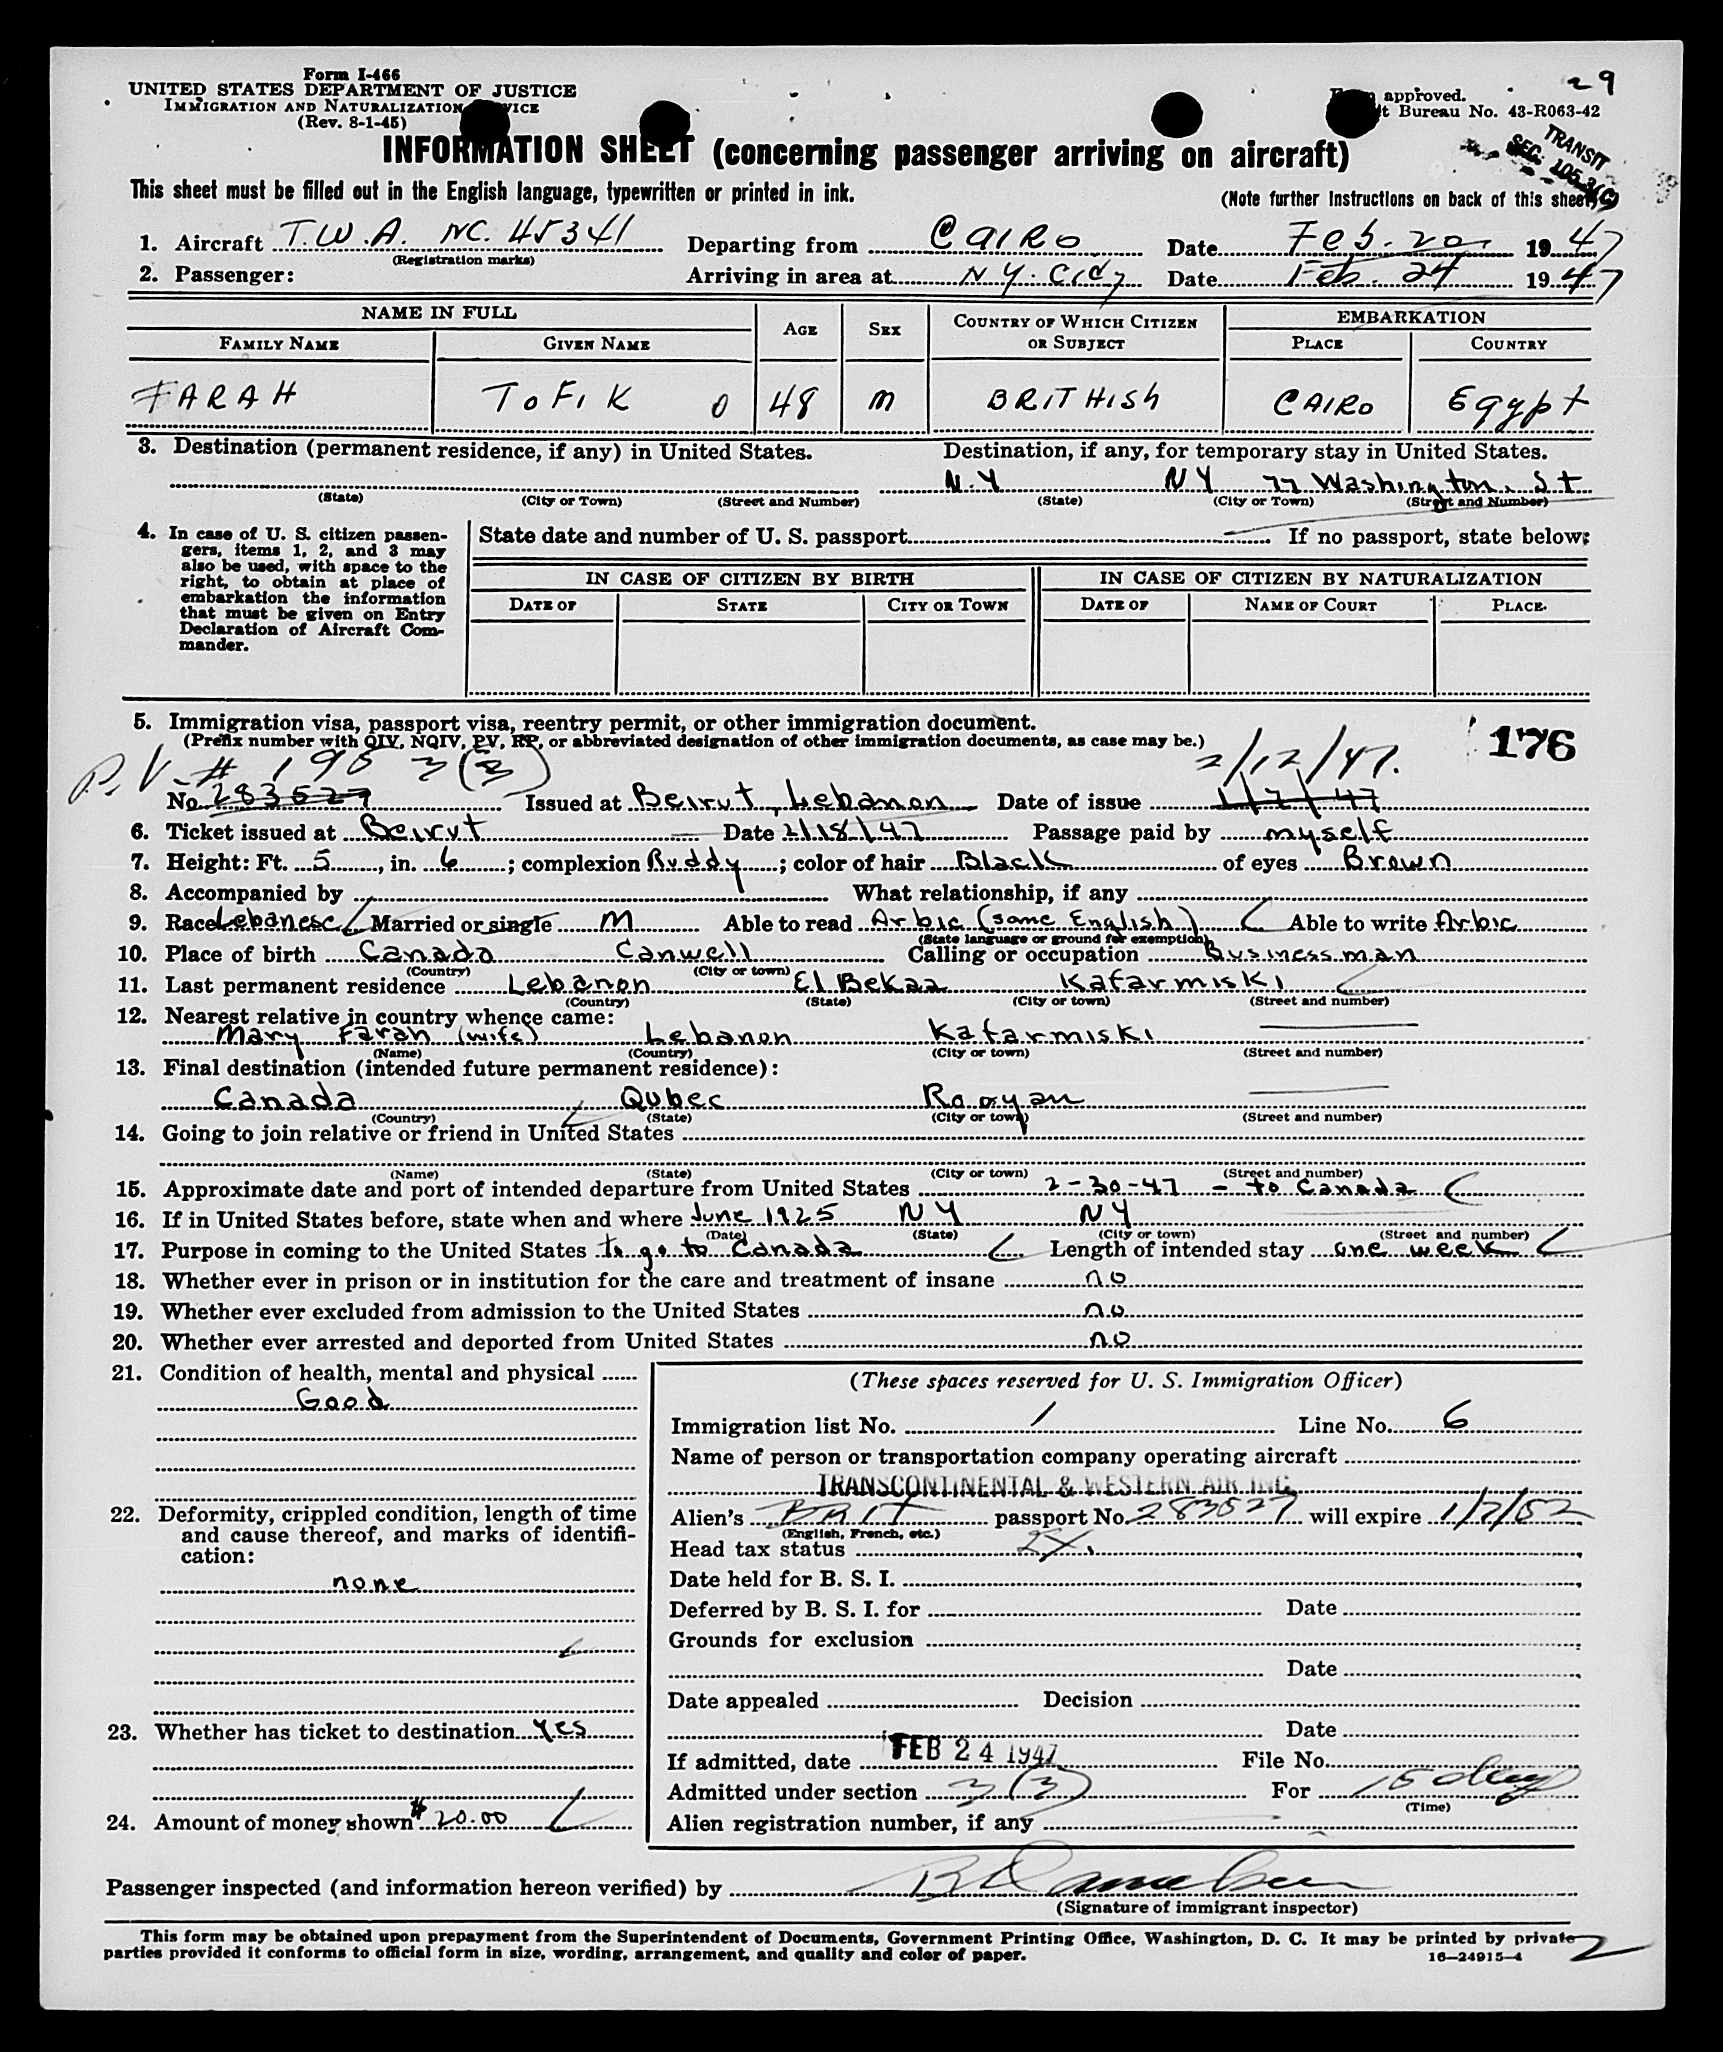 29
Form I-466
UNITED STATES DEPARTMENT OF JUSTICE
IMMIGRATION AND NATURALIZATION SERVICE
(Rev. 8-1-45)
Form approved.
Bureau No. 43-R063-42
TRANSIT
SEC. 105.3(C)
INFORMATION SHEET (concerning passenger arriving on aircraft)
This sheet must be filled out in the English language, typewritten or printed in ink.
(Note further instructions on back of this sheet)
1. Aircraft T.W.A. NC. 45341 Departing from CAIRO Date Feb. 20 1947
(Registration marks)
2. Passenger: Arriving in area at N.Y. City Date Feb. 24 1947
NAME IN FULL AGE SEX COUNTRY OF WHICH CITIZEN OR SUBJECT EMBARKATION
FAMILY NAME GIVEN NAME PLACE COUNTRY
FARAH TOFIK O 48 M BRITHISH CAIRO Egypt
3. Destination (permanent residence, if any) in United States. Destination, if any, for temporary stay in United States.
N.Y NY 77 Washington. St
(State) (City or Town) (Street and Number) (State) (City or Town) (Street and Number)
4. In case of U. S. citizen passengers, items 1, 2, and 3 may also be used, with space to the right, to obtain at place of embarkation the information that must be given on Entry Declaration of Aircraft Commander.
State date and number of U. S. passport If no passport, state below:
IN CASE OF CITIZEN BY BIRTH IN CASE OF CITIZEN BY NATURALIZATION
DATE OF STATE CITY OR TOWN DATE OF NAME OF COURT PLACE.
5. Immigration visa, passport visa, reentry permit, or other immigration document.
(Prefix number with QIV, NQIV, PV, RP, or abbreviated designation of other immigration documents, as case may be.)
176
P.V. # 195 3(3) 2/12/47.
No. 283527 Issued at Beirut, Lebanon Date of issue 1/7/47
6. Ticket issued at Beirut Date 2/18/47 Passage paid by myself
7. Height: Ft. 5, in. 6; complexion Ruddy; color of hair Black of eyes Brown
8. Accompanied by What relationship, if any
9. Race Lebanese Married or single M Able to read Arbic (some English) Able to write Arbic
(State language or ground for exemption)
10. Place of birth Canada Canwell Calling or occupation Businessman
(Country) (City or town)
11. Last permanent residence Lebanon El Bekaa Kafarmiski
(Country) (State) (City or town) (Street and number)
12. Nearest relative in country whence came:
Mary Farah (wife) Lebanon Kafarmiski
(Name) (Country) (City or town) (Street and number)
13. Final destination (intended future permanent residence):
Canada Qubec Rooyan
(Country) (State) (City or town) (Street and number)
14. Going to join relative or friend in United States
(Name) (State) (City or town) (Street and number)
15. Approximate date and port of intended departure from United States 2-30-47 - to Canada
16. If in United States before, state when and where June 1925 NY NY
(Date) (State) (City or town) (Street and number)
17. Purpose in coming to the United States to go to Canada Length of intended stay one week
18. Whether ever in prison or in institution for the care and treatment of insane no
19. Whether ever excluded from admission to the United States no
20. Whether ever arrested and deported from United States no
21. Condition of health, mental and physical
Good
22. Deformity, crippled condition, length of time and cause thereof, and marks of identification:
none
23. Whether has ticket to destination Yes
24. Amount of money shown $20.00
(These spaces reserved for U. S. Immigration Officer)
Immigration list No. 1 Line No. 6
Name of person or transportation company operating aircraft
TRANSCONTINENTAL & WESTERN AIR INC.
Alien's BRIT passport No. 283527 will expire 1/7/52
(English, French, etc.)
Head tax status EX.
Date held for B. S. I.
Deferred by B. S. I. for Date
Grounds for exclusion
Date
Date appealed Decision
Date
If admitted, date FEB 24 1947 File No.
Admitted under section 3(3) For 15 days
(Time)
Alien registration number, if any
Passenger inspected (and information hereon verified) by
(Signature of immigrant inspector)
This form may be obtained upon prepayment from the Superintendent of Documents, Government Printing Office, Washington, D. C. It may be printed by private
parties provided it conforms to official form in size, wording, arrangement, and quality and color of paper.
16-24915-4
2